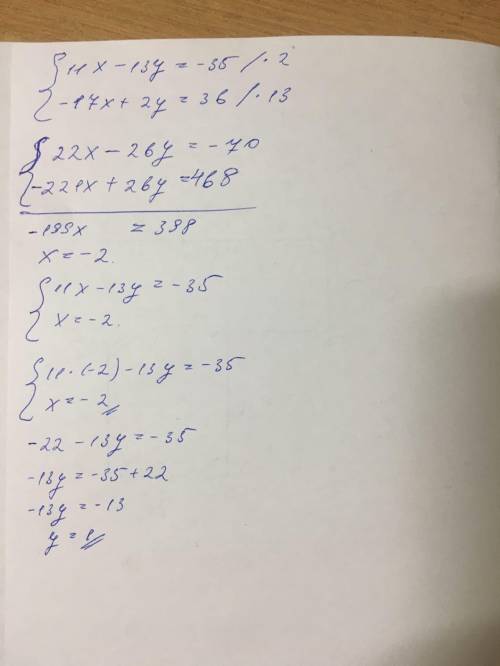 { 11x - 13y = -35 / · 2
{ -17x + 2y = 36 / · 13
{ 22x - 26y = -70
{ -221x + 26y = 468
-199x = 398
x = -2.
{ 11x - 13y = -35
{ x = -2.
{ 11 · (-2) - 13y = -35
{ x = -2
-22 - 13y = -35
-13y = -35 + 22
-13y = -13
y = 1